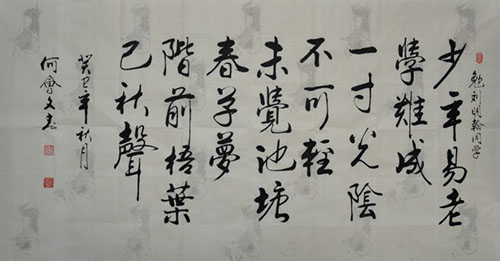 勉刘明翰同学
少年易老
學難成
一寸光陰
不可輕
未覺池塘
春草夢
階前梧葉
已秋聲
癸巳年秋月
何會文書